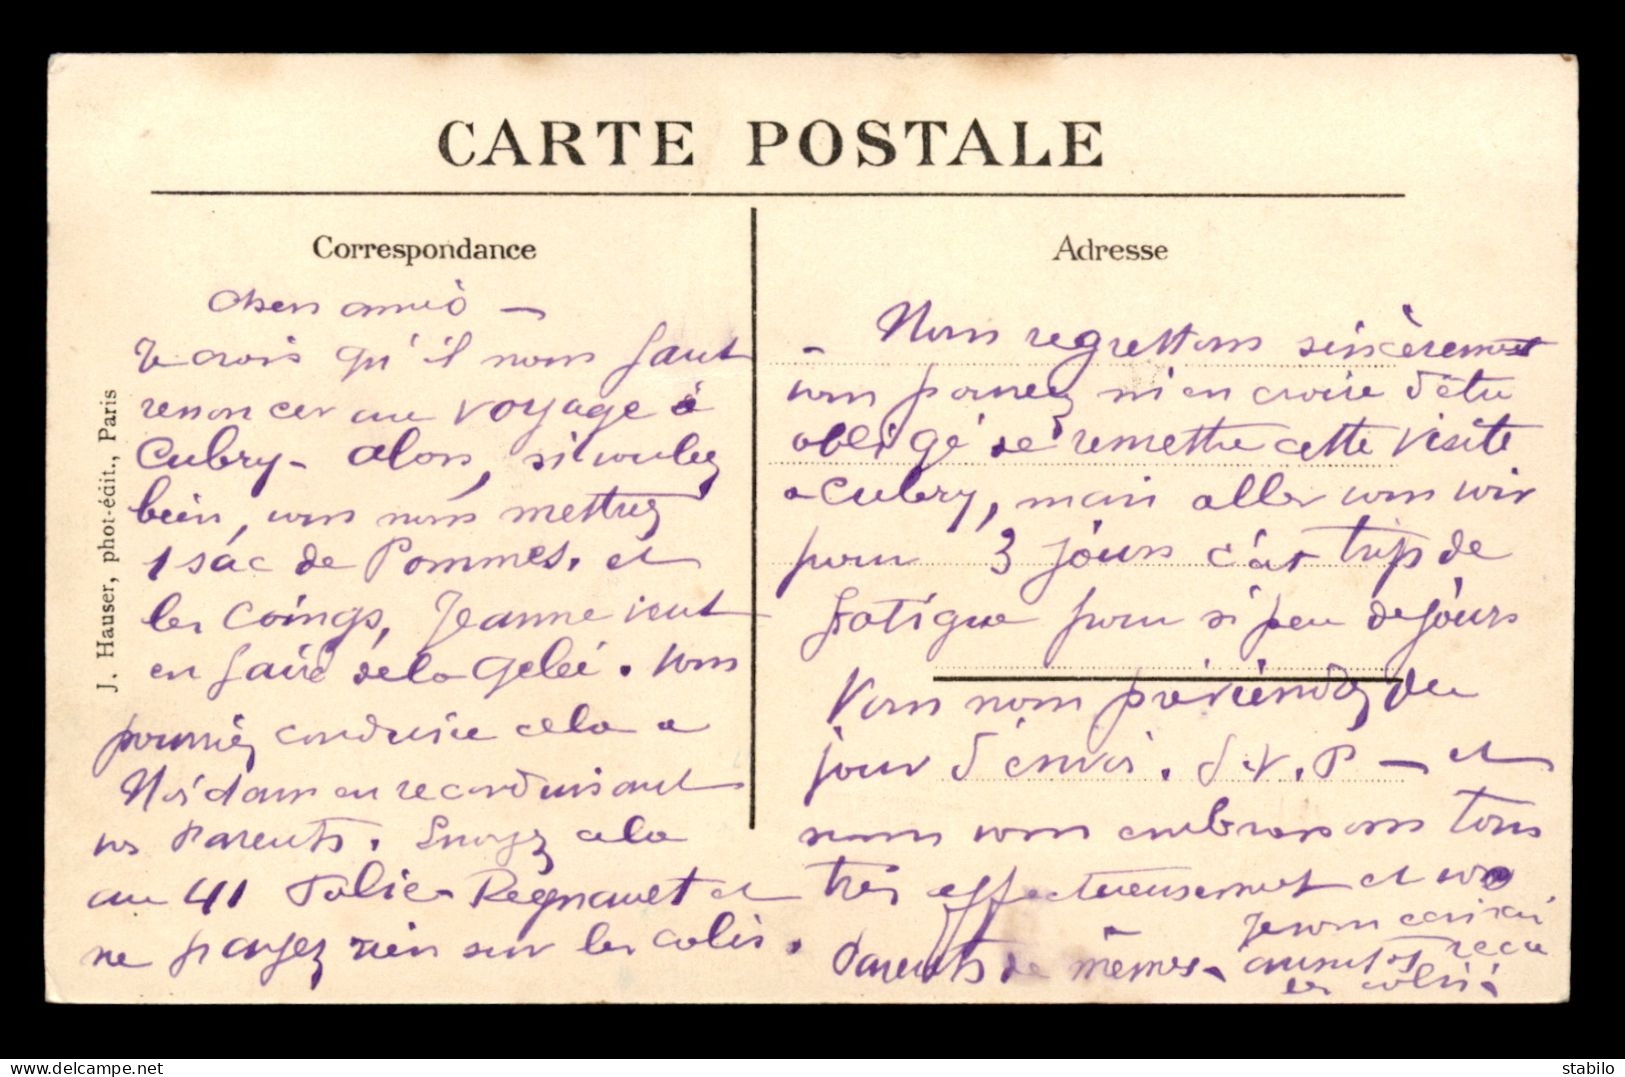 CARTE POSTALE
Correspondance
Adresse
J. Hauser, phot-édit., Paris
Chers amis –
Je crois qu'il nous faut
renoncer au voyage à
Cubry – Alors, si voulez
bien, vous nous mettrez
1 sac de Pommes. et
les Coings, Jeanne veut
en faire de la Gelée. Vous
pourriez conduire cela a
en reconduisant
vos Parents. Envoyez cela
au 41 Folie-Regnault et
ne payez rien sur les colis.
– Nous regrettons sincèrement
vous pouvez m'en croire d'être
obligé de remettre cette visite
a Cubry, mais aller vous voir
pour 3 jours c'est trop de
fatigue pour si peu de jours
Vous nous préviendrez du
jour d'envoi. S.V.P – et
nous vous embrassons tous
très affectueusement et vos
Parents de mêmes – Je vous écrirai
aussitôt reçu
les colis.
stabilo